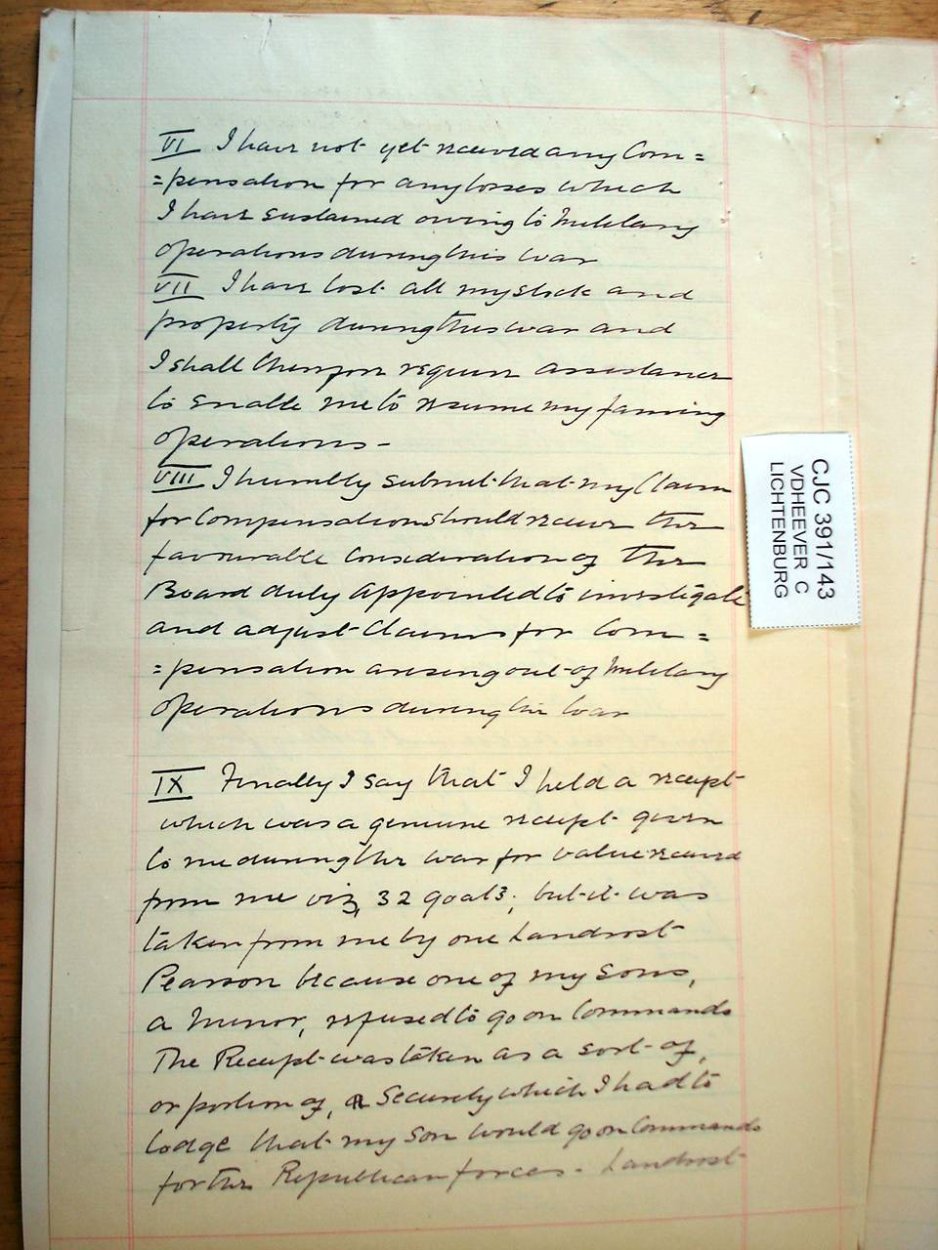 VI I have not yet received any Com=
=pensation for any losses which
I have sustained owing to Military
operations during this war
VII I have lost all my stock and
property during this war and
I shall therefore require assistance
to enable me to resume my farming
operations -
VIII I humbly submit that my Claim
for Compensation should receive the
favourable Consideration of the
Board duly appointed to investigate
and adjust Claims for Com=
=pensation arising out of Military
operations during the War
IX Finally I say that I held a receipt
which was a genuine receipt given
to me during the war for value received
from me viz, 32 goats; but it was
taken from me by one Landrost
Pearson because one of my sons,
a Minor, refused to go on Commando
The Receipt was taken as a sort of,
or portion of, a Security which I had to
lodge that my son would go on Commando
for the Republican forces - Landrost
CJC 391/143
VDHEEVER C
LICHTENBURG